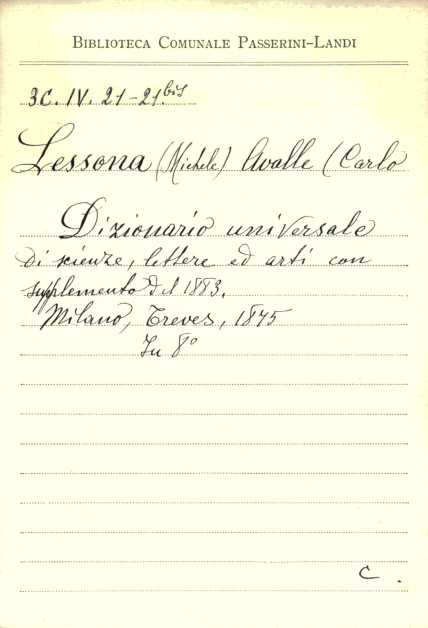 BIBLIOTECA COMUNALE PASSERINI-LANDI
3C. IV. 21-21.bis
Lessona (Michele) Avalle (Carlo
Dizionario universale
di scienze, lettere ed arti con
supplemento del 1883.
Milano, Treves, 1875
In 8°
C.